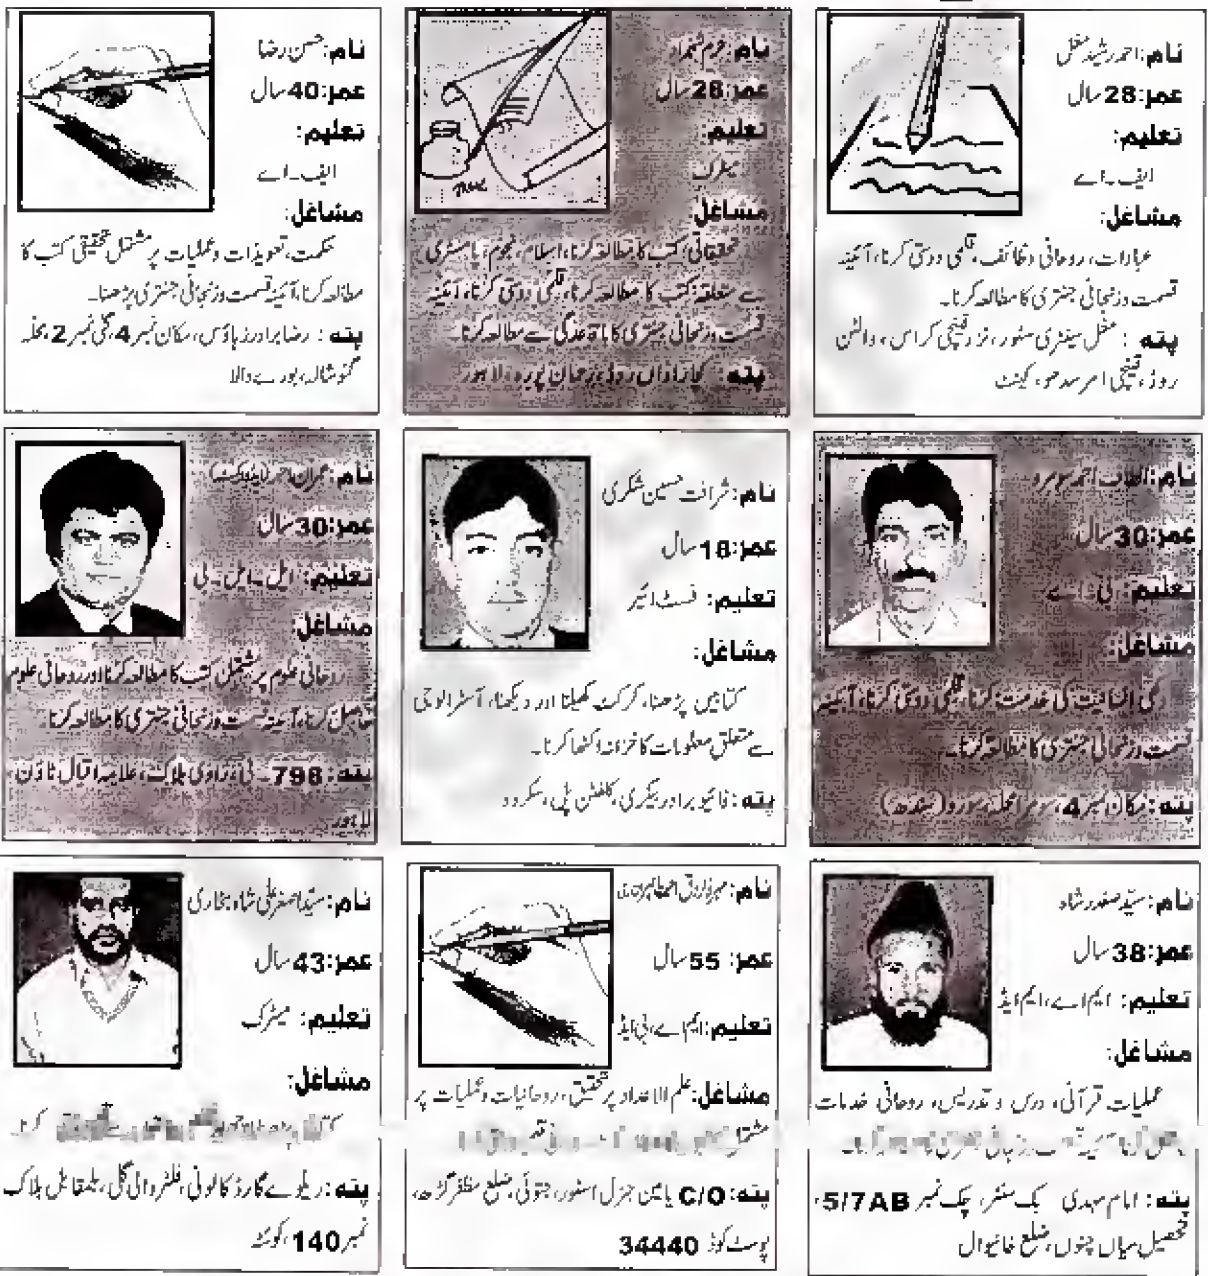 نام: احمد رشید مغل
عمر: 28 سال
تعلیم:
ایف۔اے
مشاغل:
عبادات، روحانی وظائف، قلمی دوستی کرنا، آئینہ
قسمت و زنجانی جنتری کا مطالعہ کرنا۔
پتہ: مغل سینٹری سٹور، نزد قینچی کراس، والٹن
روڈ، قینچی امر سدھو، کینٹ
نام: خرم شہزاد
عمر: 28 سال
تعلیم:
میٹرک
مشاغل:
تحقیقاتی کتب کا مطالعہ کرنا، اسلام، نجوم، پامسٹری
سے متعلقہ کتب کا مطالعہ کرنا، قلمی دوستی کرنا، آئینہ
قسمت و زنجانی جنتری کا باقاعدگی سے مطالعہ کرنا۔
پتہ: روڈ، رحمان پورہ، لاہور
نام: حسن رضا
عمر: 40 سال
تعلیم:
ایف۔اے
مشاغل:
حکمت، تعویذات و عملیات پر مشتمل تحقیقی کتب کا
مطالعہ کرنا، آئینہ قسمت و زنجانی جنتری پڑھنا۔
پتہ: رضا برادرز ہاؤس، مکان نمبر 4، گلی نمبر 2، محلہ
گئوشالہ، بورے والا
نام: الطاف احمد سومرو
عمر: 30 سال
تعلیم: بی۔اے
مشاغل:
دکھی انسانیت کی خدمت کرنا، قلمی دوستی کرنا، آئینہ
قسمت و زنجانی جنتری کا مطالعہ کرنا۔
پتہ: مکان نمبر 4، سومرا محلہ، (سندھ)
نام: شرافت حسین شگری
عمر: 18 سال
تعلیم: فسٹ ائیر
مشاغل:
کتابیں پڑھنا، کرکٹ کھیلنا اور دیکھنا، آسٹرالوجی
سے متعلق معلومات کا خزانہ اکٹھا کرنا۔
پتہ: فائیو برادر بیکری، کلفٹن پل، سکردو
نام: عمران احمر (ایڈووکیٹ)
عمر: 30 سال
تعلیم: ایل۔ایل۔بی
مشاغل:
روحانی علوم پر مشتمل کتب کا مطالعہ کرنا اور روحانی علوم
حاصل کرنا، آئینہ قسمت و زنجانی جنتری کا مطالعہ کرنا۔
پتہ: 798۔ بی، راوی بلاک، علامہ اقبال ٹاؤن،
لاہور
نام: سید صفدر شاہ
عمر: 38 سال
تعلیم: ایم اے، ایم ایڈ
مشاغل:
عملیات قرآنی، درس و تدریس، روحانی خدمات
پتہ: امام مہدی بک سنٹر، چک نمبر 5/7AB،
تحصیل میاں چنوں، ضلع خانیوال
نام: مہر فاروق احمد
عمر: 55 سال
تعلیم: ایم اے، بی ایڈ
مشاغل: علم الاعداد پر تحقیق، روحانیات و عملیات پر
پتہ: C/O یامین جنرل اسٹور، جتوئی، ضلع مظفر گڑھ،
پوسٹ کوڈ 34440
نام: سید اصغر علی شاہ بخاری
عمر: 43 سال
تعلیم: میٹرک
مشاغل:
پتہ: ریلوے گارڈ کالونی، فلٹر والی گلی، بالمقابل بلاک
نمبر 140، کوئٹہ